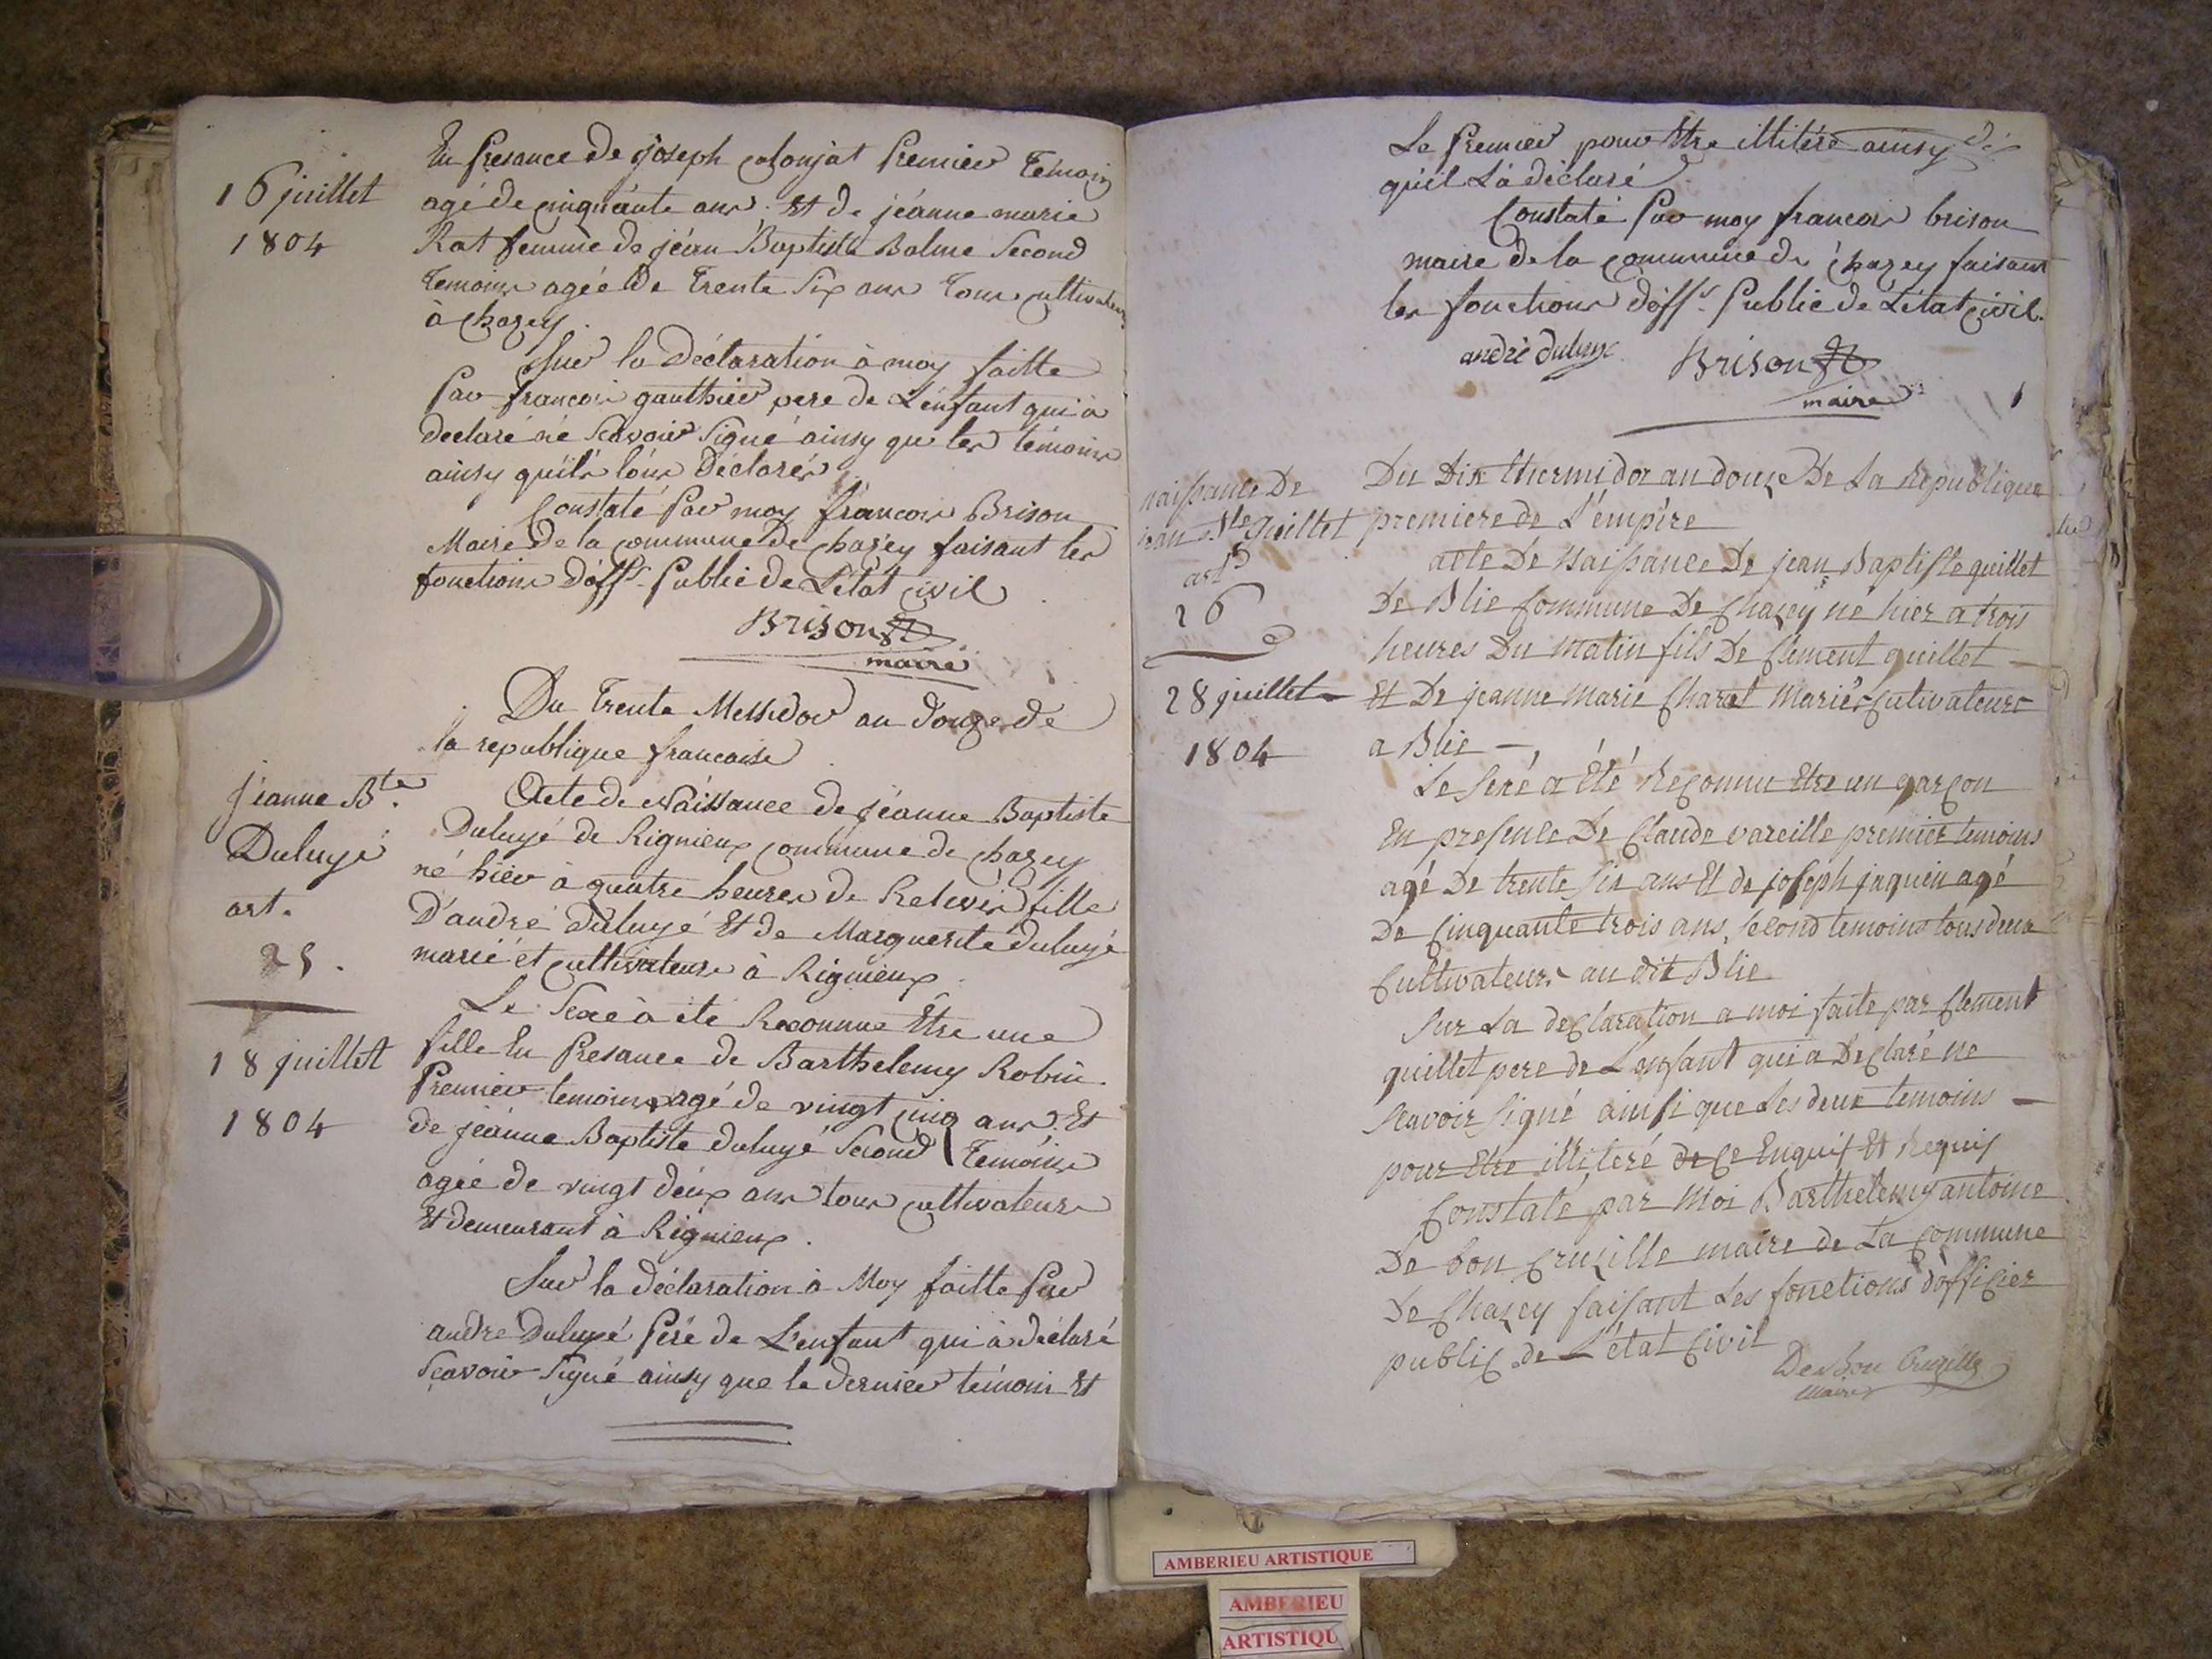 16 juillet
1804
En presance de joseph colonjat premier temoin
agé de cinquante ans. Et de jéanne marie
Rat femme de jéan Baptiste Balme second
temoins agéé de trente six ans tous cultivateurs
à chazey.
Sur la déclaration à moy faitte
par francois gauthier pere de L'énfant qui à
declaré né scavoir signé ainsy que les témoins
ainsy qu'ils lóns déclarés
Constaté par moy francois Brison
Maire de la commune de chazey faisant les
fonctions d'offr. public de L'état civil
Brison
maire
Du trente Messidor an douze de
la republique francaise
jéanne Bte.
Duluyé
art.
25.
18 juillet
1804
Acte de Naissance de jéanne Baptiste
Duluyé de Rignieux commune de chazey
né hiér à quatre heures de Relevér fille
D'andré duluyé Et de Marguerite duluyé
marié et cultivateurs à Rignieux
Le Sexe à été Reconnue Être une
fille En Presance de Barthelemy Robin
Premier temoins agé de vingt cinq ans. Et
de jéanne Baptiste duluyé second temoins
agéé de vingt déux ans tous cultivateurs
Et demeurant à Rignieux.
Sur la déclaration à Moy faitte par
andré Duluyé Peré de L'enfant qui à déclaré
scavoir signé ainsy que le dernier témoin Et
Le Premier pour Être illitéré ainsy
qu'il Là déclaré
Constaté Par moy francois brison
maire de la commune de chazey faisant
les fonctions d'offr. Public de L'état civil.
andré duluyé
Brison
maire
naissance De
jean Bte guillet
art
26
28 juillet
1804
Du Dix thermidor an douze De La Republique
premiere de L'émpire
acte De Naissance De jean Baptiste guillet
De Blie Commune De Chazey né hier a trois
heures Du matin fils De Clement guillet
Et De jeanne marie Charet mariés Cutivateurs
a Blie
Le Sexé a Été Reconnu Etre un garçon
En presence De Claude vareille premier temoins
agé De trente six ans Et de joseph jaquin agé
De Cinquante trois ans, second temoins tous deux
Cultivateurs au dit Blie
Sur La declaration a moi faite par Clement
guillet pere de L'enfant qui a Declaré ne
scavoir signé ainsi que Les deux temoins
pour Etre illiteré de Ce Enquis Et Requis
Constaté par Moi Barthelemy antoine
De bon Cruzille maire de La Commune
De Chazey faisant Les fonctions d'officier
public de L'état Civil
De bon Cruzille
maire
AMBERIEU ARTISTIQUE
AMBERIEU
ARTISTIQU